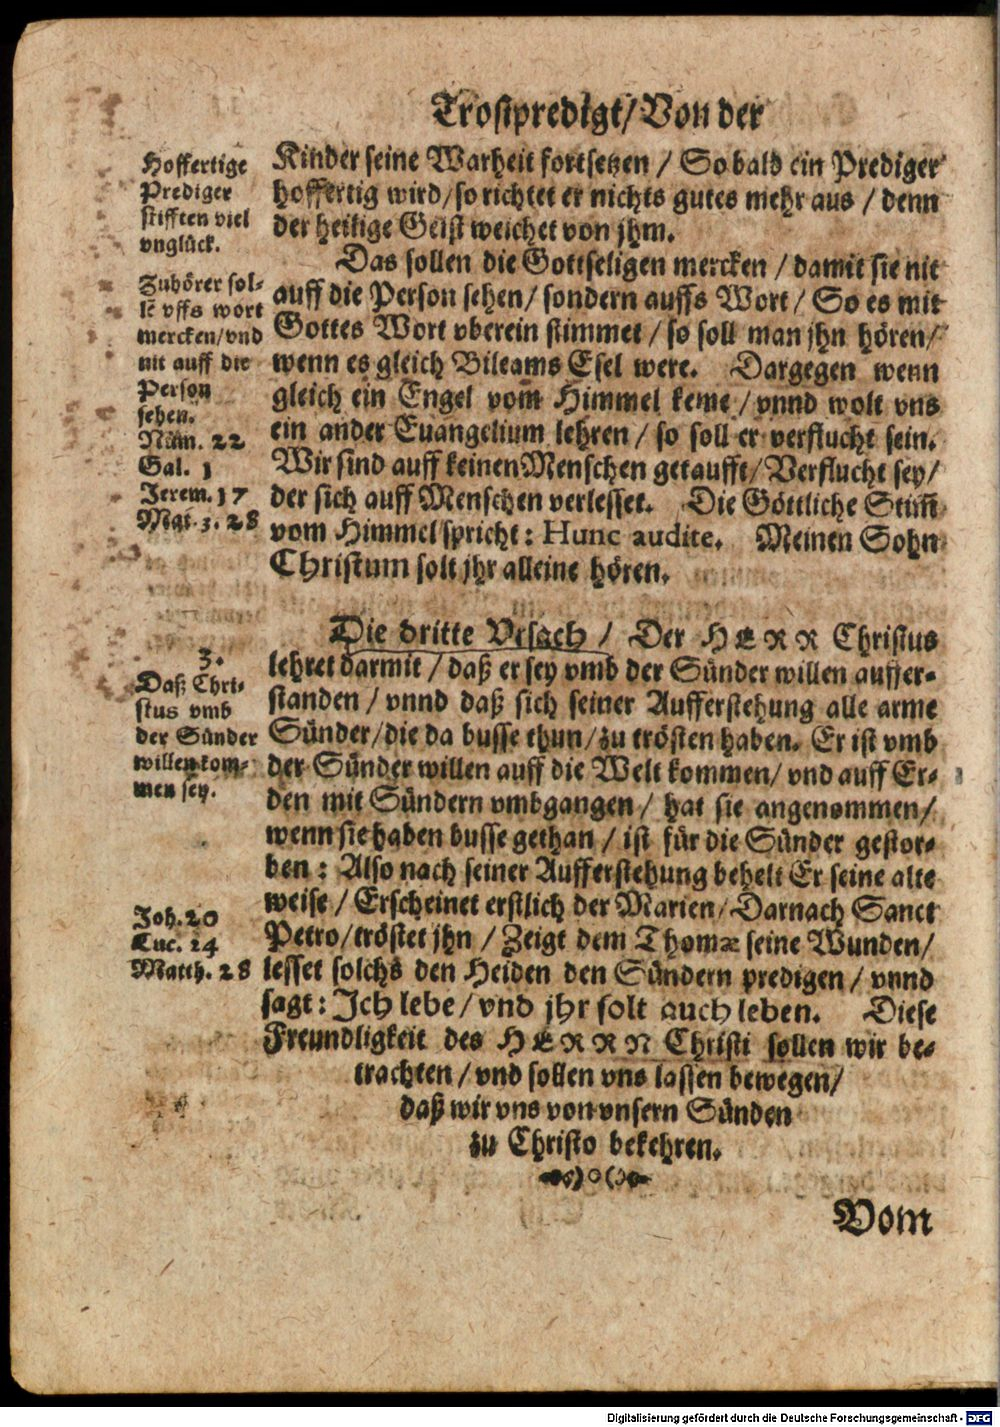 Trostpredigt/Von der
Hoffertige
Prediger
stifften viel
vnglück.
Kinder seine Warheit fortsetzen / So bald ein Prediger
hoffertig wird/so richtet er nichts gutes mehr aus / denn
der heilige Geist weichet von jhm.
Zuhörer sol-
lē vffs wort
mercken/vnd
nit auff die
Person
sehen.
Num. 22
Gal. 1
Jerem. 17
Mat. 3. 28
Das sollen die Gottseligen mercken / damit sie nit
auff die Person sehen/ sondern auffs Wort/ So es mit
Gottes Wort vberein stimmet / so soll man jhn hören/
wenn es gleich Bileams Esel were. Dargegen wenn
gleich ein Engel vom Himmel keme / vnnd wolt vns
ein ander Euangelium lehren / so soll er verflucht sein.
Wir sind auff keinen Menschen getaufft/ Verflucht sey/
der sich auff Menschen verlesset. Die Göttliche Stim̄
vom Himmel spricht: Hunc audite. Meinen Sohn
Christum solt jhr alleine hören.
3.
Daß Chri-
stus vmb
der Sünder
willen kom-
men sey.
Die dritte Vrsach / Der HERR Christus
lehret darmit / daß er sey vmb der Sünder willen auffer-
standen / vnnd daß sich seiner Aufferstehung alle arme
Sünder/die da busse thun/zu trösten haben. Er ist vmb
der Sünder willen auff die Welt kommen/ vnd auff Er-
den mit Sündern vmbgangen/ hat sie angenommen/
wenn sie haben busse gethan / ist für die Sünder gestor-
ben: Also nach seiner Aufferstehung behelt Er seine alte
Joh. 20
Luc. 24
Matth. 28
weise / Erscheinet erstlich der Marien/Darnach Sanct
Petro/tröstet jhn / Zeigt dem Thomæ seine Wunden/
lesset solchs den Heiden den Sündern predigen / vnnd
sagt: Ich lebe / vnd jhr solt auch leben. Diese
Freundligkeit des HERRN Christi sollen wir be-
trachten / vnd sollen vns lassen bewegen/
daß wir vns von vnsern Sünden
zu Christo bekehren.
Vom
Digitalisierung gefördert durch die Deutsche Forschungsgemeinschaft - DFG